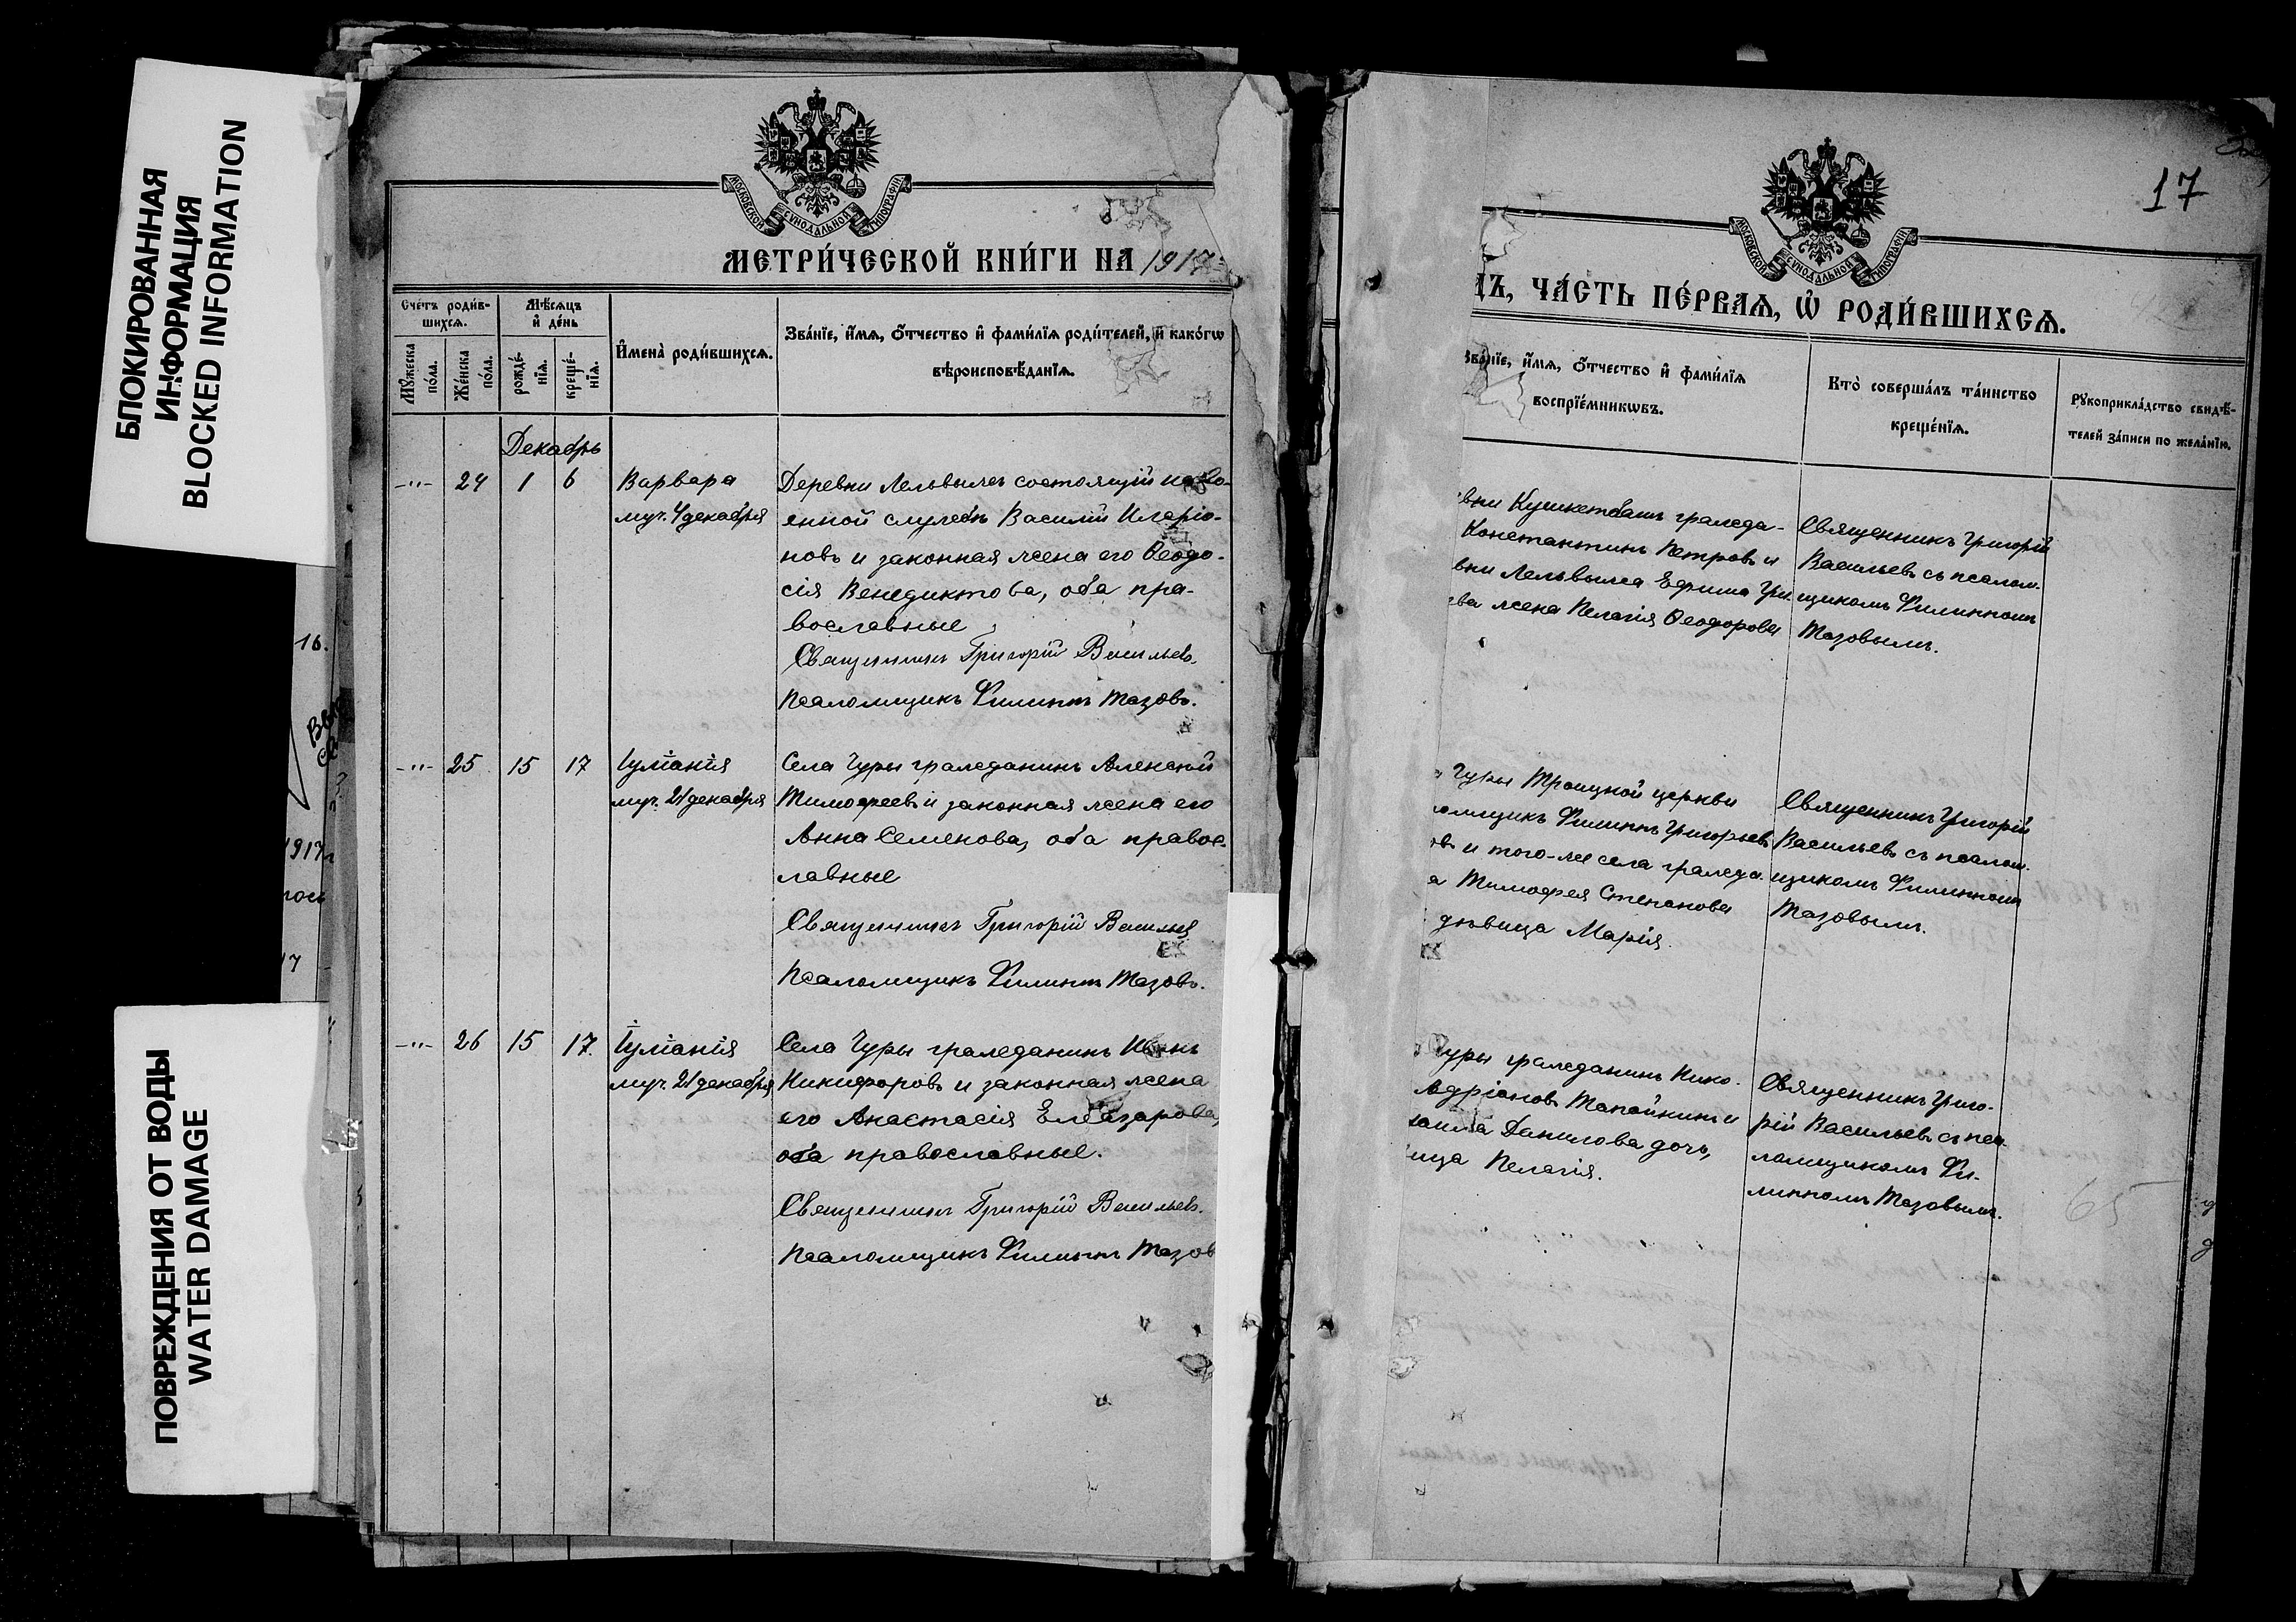 БЛОКИРОВАННАЯ
ИНФОРМАЦИЯ
BLOCKED INFORMATION
ПОВРЕЖДЕНИЯ ОТ ВОДЫ
WATER DAMAGE
16.
1917
17
МОСКОВСКОЙ СѴНОДАЛЬНОЙ ТИПОГРАФІИ
МЕТРИ́ЧЕСКОЙ КНИ́ГИ НА 1917
Сче́тъ роди́в-
шихсѧ.
Мѣ́сѧцъ
и҆ де́нь
Мꙋ́жеска
по́ла.
Же́нска
по́ла.
рожде́-
нїѧ.
креще́-
нїѧ.
И҆мена̀ роди́вшихсѧ.
Зва́нїе, и҆́мѧ, ѻ҆́тчество и҆ фами́лїѧ роди́телей, и҆ како́гѡ
вѣроисповѣ́данїѧ.
Декабрь
-"- 24 1 6 Варвара
муч. 4 декабря
Деревни Лельвыжъ состоящій на во-
енной службѣ Василій Иларіо-
новъ и законная жена его Ѳеодо-
сія Венедиктова, оба пра-
вославные
Священникъ Григорій Васильевъ.
Псаломщикъ Филиппъ Мазовъ.
-"- 25 15 17 Іуліанія
муч. 21 декабря
Села Чуры гражданинъ Алексѣй
Тимоѳеевъ и законная жена его
Анна Семенова, оба правос-
лавные
Священникъ Григорій Васильев
Псаломщикъ Филиппъ Мазовъ.
-"- 26 15 17. Іуліанія
муч. 21 декабря
Села Чуры гражданинъ Иванъ
Никифоровъ и законная жена
его Анастасія Елеазарова,
оба православные.
Священникъ Григорій Васильевъ.
Псаломщикъ Филиппъ Мазов
17
МОСКОВСКОЙ СѴНОДАЛЬНОЙ ТИПОГРАФІИ
ДЪ, ЧА́СТЬ ПЕ́РВАѦ, Ѡ҆ РОДИ́ВШИХСѦ.
Зва́нїе, и҆́мѧ, ѻ҆́тчество и҆ фами́лїѧ
воспрїе́мникѡвъ.
Кто̀ соверша́лъ та́инство
креще́нїѧ.
Рꙋкоприкла́дство свидѣ́-
телей за́писи по жела́нїю.
вни Кушкетбашъ гражда-
Константинъ Петровъ и
вни Лельвыжа Ефима Гри
ева жена Пелагія Ѳеодорова
Священникъ Григорій
Васильевъ съ псалом-
щикомъ Филиппомъ
Мазовымъ.
Чуры Троицкой церкви
омщикъ Филиппъ Григорьевъ
овъ и того-же села гражда-
а Тимоѳея Степанова
дѣвица Марія.
Священникъ Григорій
Васильевъ съ псалом-
щикомъ Филиппомъ
Мазовымъ.
Чуры гражданинъ Нико-
Адріановъ Мапайкинъ и
Данилова дочь,
ица Пелагія.
Священникъ Григо-
рій Васильевъ съ пса-
ломщикомъ Фи-
липпомъ Мазовымъ.
65